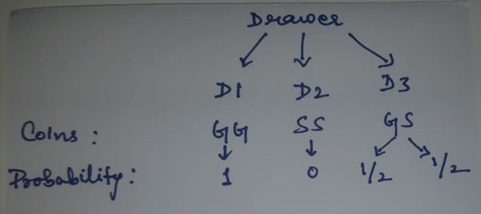 Drawer
D1 D2 D3
Coins: GG SS GS
Probability: 1 0 1/2 1/2